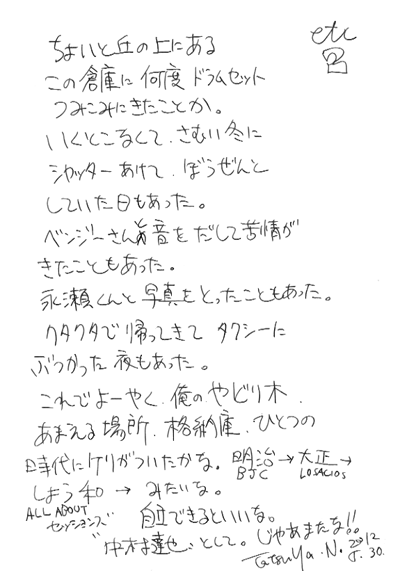 etc
ちょいと丘の上にある
この倉庫に何度ドラムセット
つみこみにきたことか。
さむい冬に
シャッターあけて、ぼうぜんと
していた日もあった。
ベンジーさんと音をだして苦情が
きたこともあった。
永瀬くんと写真をとったこともあった。
クタクタで帰ってきてタクシーに
ぶつかった夜もあった。
これでよーやく、俺のやどり木、
あまえる場所、格納庫、ひとつの
時代にケリがついたかな。明治→大正→
BJC LOSACIOS
しょう和→みたいな。
ALL ABOUT
セッションズ
自立できるといいな。
"中村達也"として。じゃあまたな!!
Tatsuya.N. 2012
5.30.